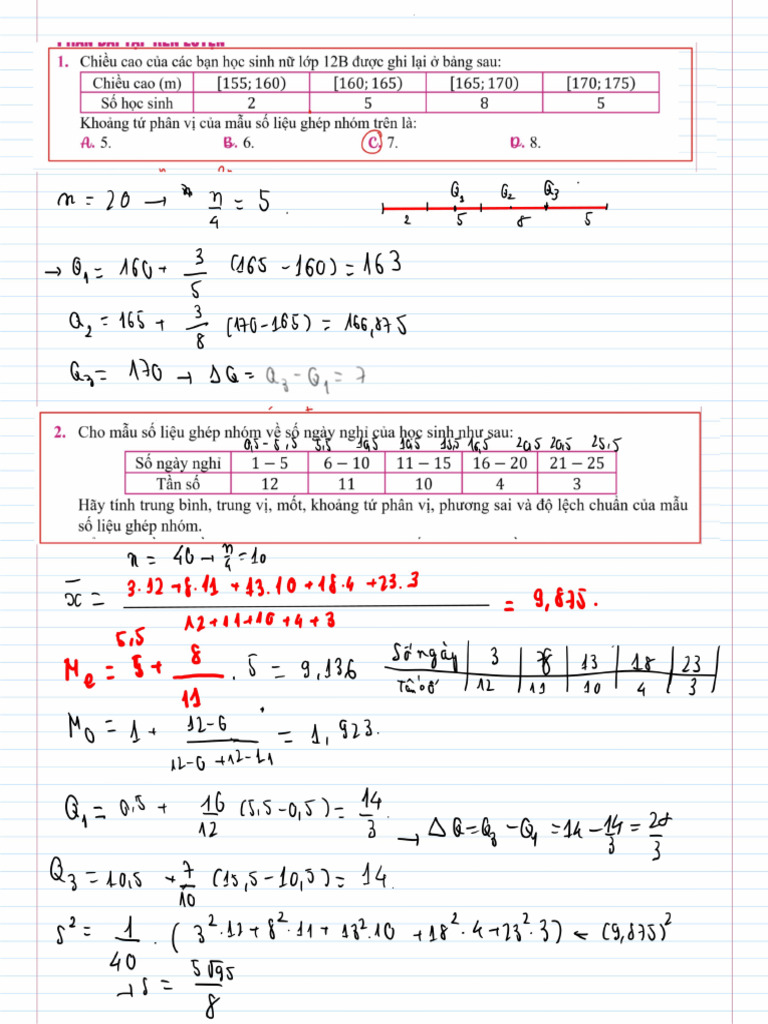 PHẦN BÀI TẬP RÈN LUYỆN
1. Chiều cao của các bạn học sinh nữ lớp 12B được ghi lại ở bảng sau:
Chiều cao (m) [155; 160) [160; 165) [165; 170) [170; 175)
Số học sinh 2 5 8 5
Khoảng tứ phân vị của mẫu số liệu ghép nhóm trên là:
A. 5. B. 6. C. 7. D. 8.
n = 20 → n/4 = 5
Q1 Q2 Q3
2 5 8 5
→ Q1 = 160 + 3/5 (165 - 160) = 163
Q2 = 165 + 3/8 (170 - 165) = 166,875
Q3 = 170 → ΔQ = Q3 - Q1 = 7
2. Cho mẫu số liệu ghép nhóm về số ngày nghỉ của học sinh như sau:
0,5 - 5,5 5,5 10,5 10,5 15,5 15,5 20,5 20,5 25,5
Số ngày nghỉ 1 – 5 6 – 10 11 – 15 16 – 20 21 – 25
Tần số 12 11 10 4 3
Hãy tính trung bình, trung vị, mốt, khoảng tứ phân vị, phương sai và độ lệch chuẩn của mẫu
số liệu ghép nhóm.
n = 40 → n/4 = 10
x̄ = (3.12 + 8.11 + 13.10 + 18.4 + 23.3) / (12 + 11 + 10 + 4 + 3) = 9,875.
5,5
Me = 5 + 8/11 . 5 = 9,136
Số ngày 3 8 13 18 23
Tần số 12 11 10 4 3
M0 = 1 + (12-0) / (12-0+12-11) = 1,923.
Q1 = 0,5 + 10/12 (5,5 - 0,5) = 14/3
→ ΔQ = Q3 - Q1 = 14 - 14/3 = 28/3
Q3 = 10,5 + 7/10 (15,5 - 10,5) = 14.
s² = 1/40 . (3².12 + 8².11 + 13².10 + 18².4 + 23².3) - (9,875)²
→ s = 5√95/8